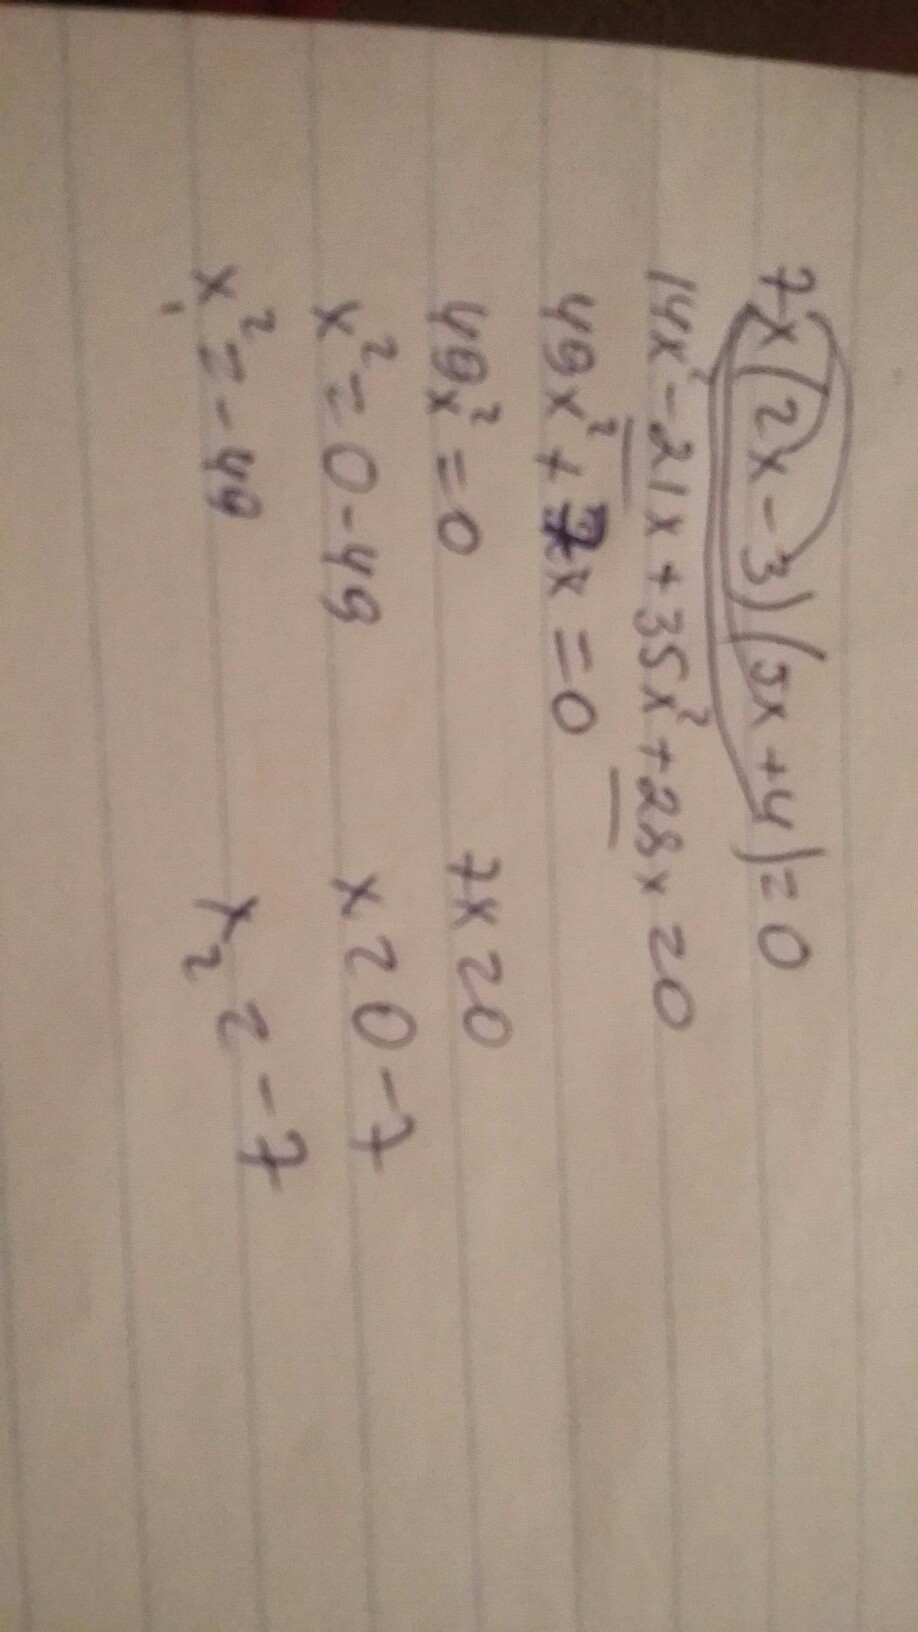 7x(2x-3)(5x+4)=0
14x²-21x+35x²+28x=0
49x²+7x=0
49x²=0 7x=0
x²=0-49 x=0-7
x₁²=-49 x₂=-7